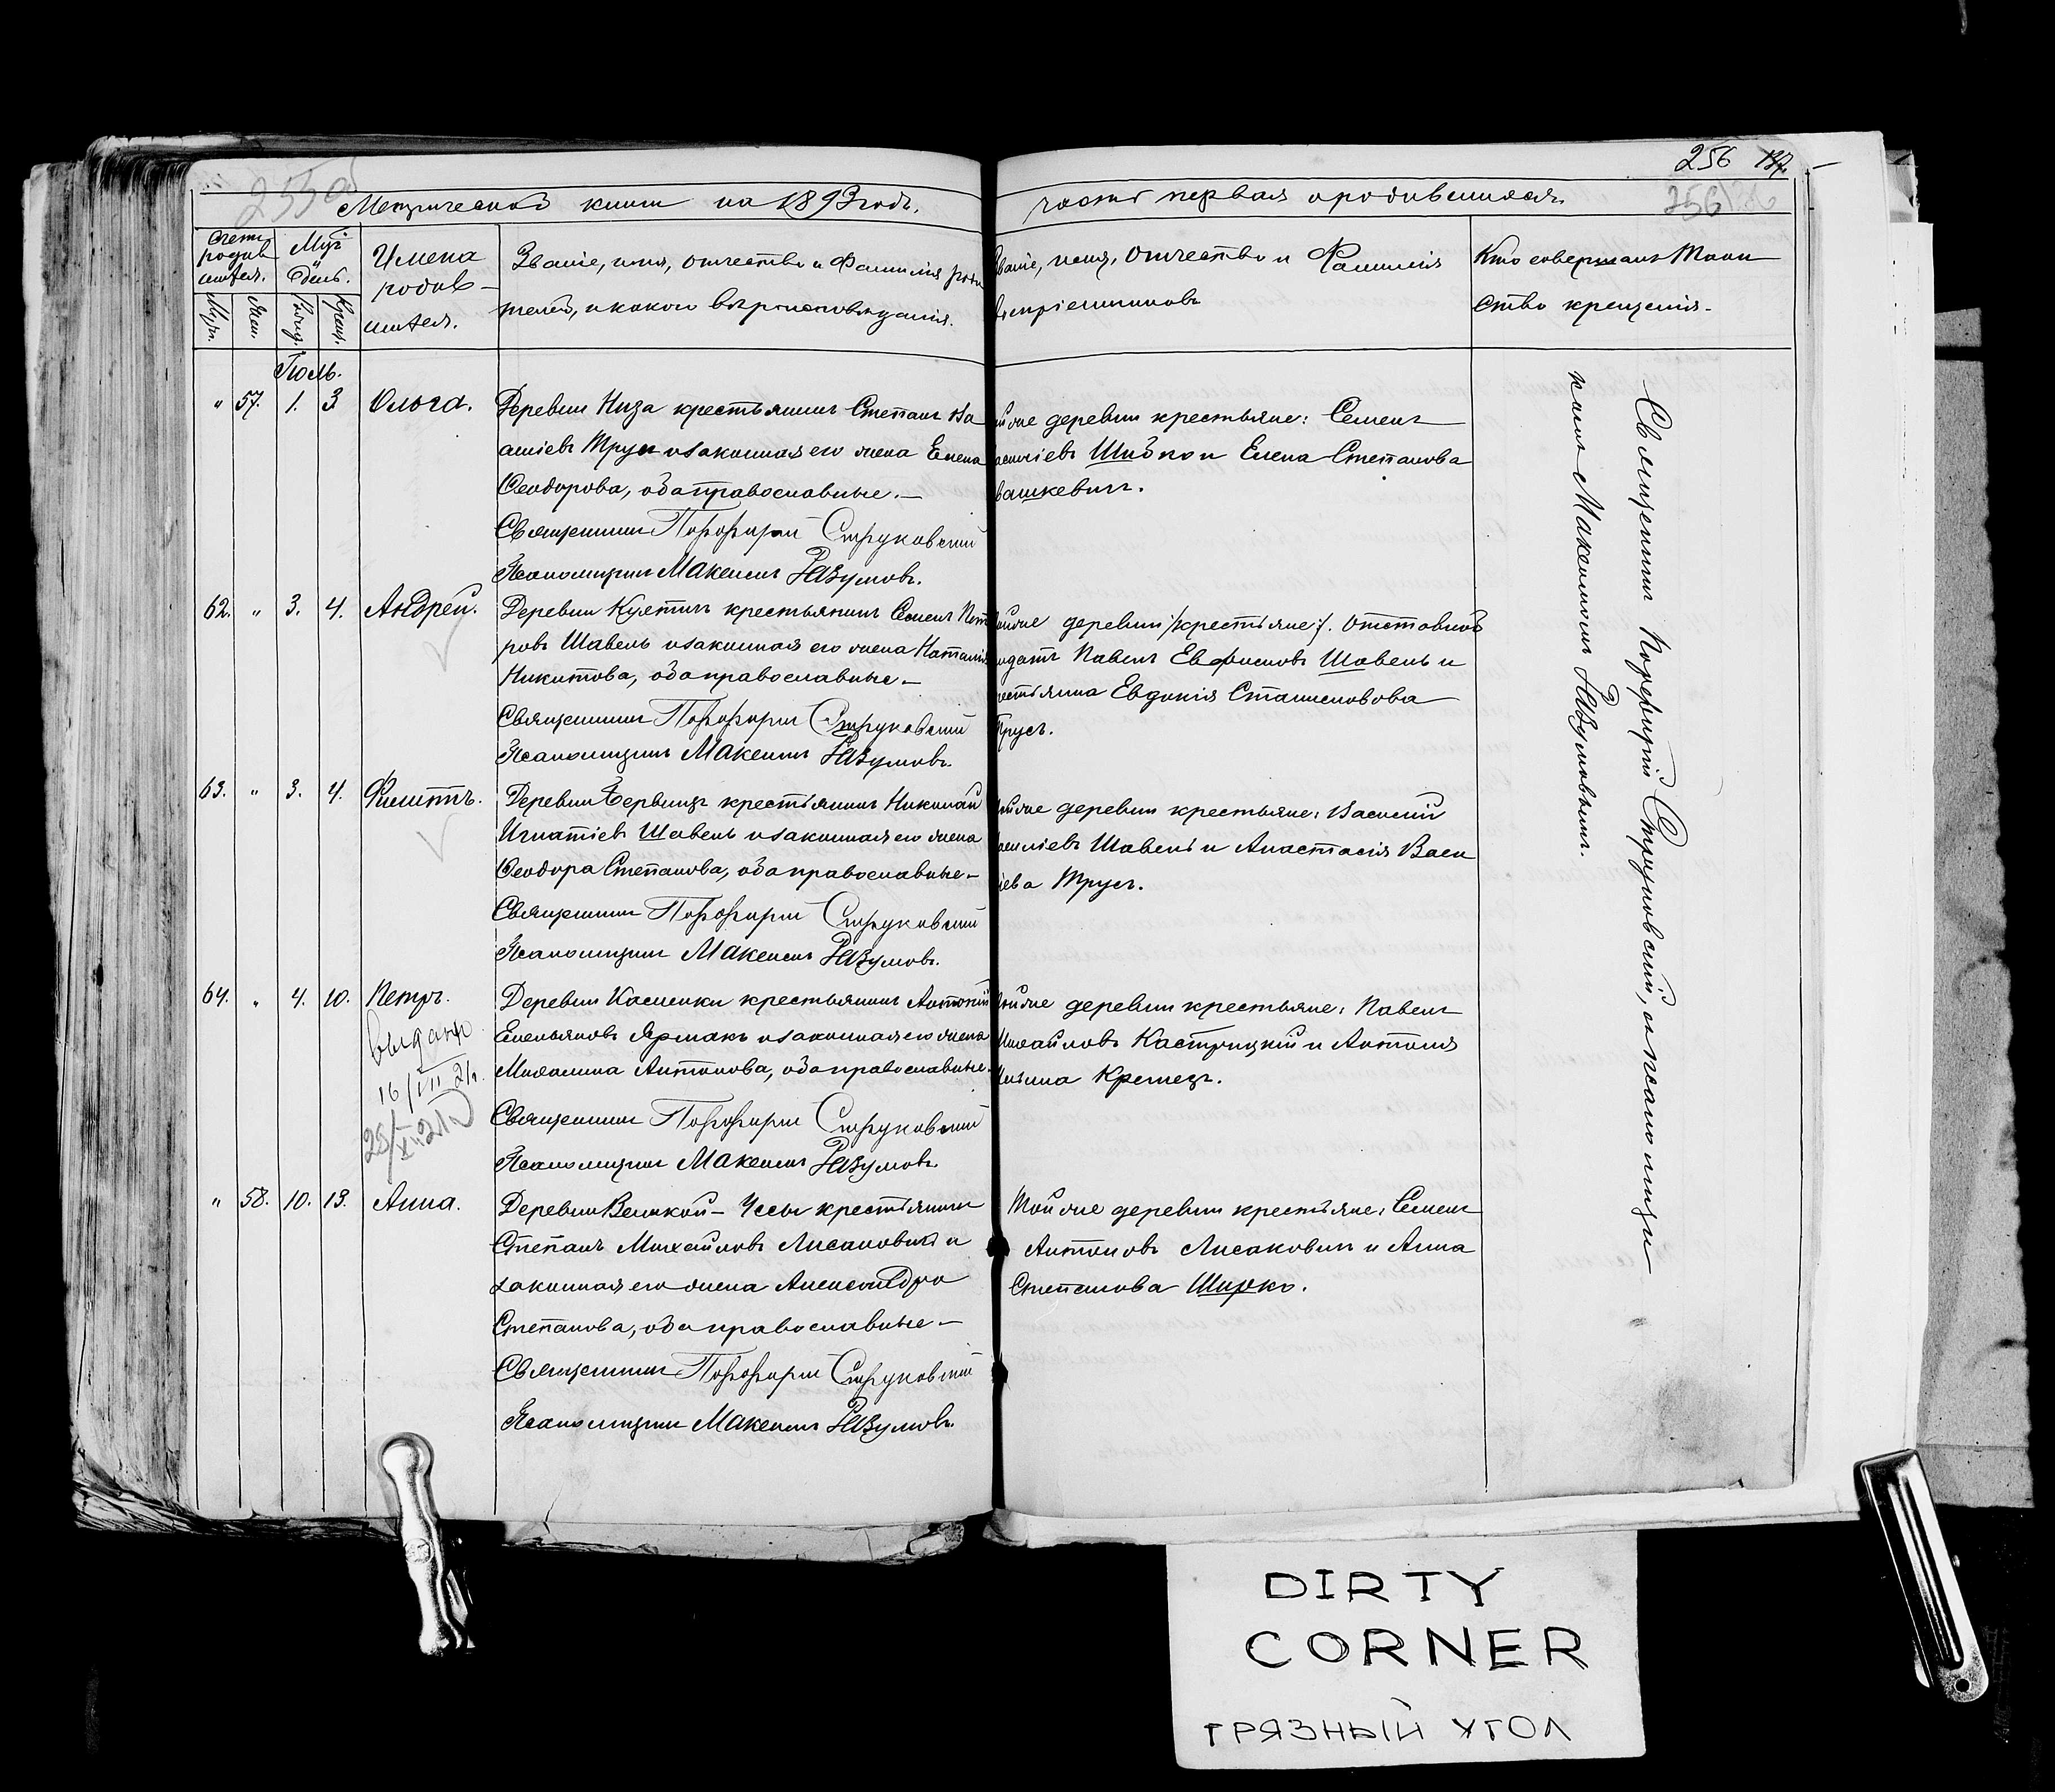 256 137.
255об
256
Метрической книги на 1893 годъ.
часть первая о родившихся.
Счетъ родив
шихся.
Муж.
Жен.
День.
Рожд.
Крещ.
Имена
родив-
шихся.
Званіе, имя, отчество и фамилія роди
телей, и какого вѣроисповѣданія.
Званіе, имя, отчество и Фамилія
воспріемниковъ
Кто совершалъ Таин
ство крещенія.
Іюль.
" 57. 1. 3 Ольга.
Деревни Низа крестьянинъ Степанъ
Трус и законная его жена Елена
Ѳеодорова, оба православные.—
Священникъ Порфирій Струковскій
Псаломщикъ Максимъ Разумовъ.
той же деревни крестьяне: Семенъ
Василіевъ и Елена Степанова
62. " 3. 4. Андрей.
Деревни крестьянинъ Семенъ Пет
ровъ Шавель и законная его жена Наталія
Никитова, оба православные.—
Священникъ Порфирій Струковскій
Псаломщикъ Максимъ Разумовъ.
той же деревни /крестьяне/. отставной
солдатъ Павелъ Евфимовъ Шавель и
крестьянка Евдокія
Трусъ.
63. " 3. 4. Филиппъ.
Деревни крестьянинъ Николай
Игнатіевъ Шавель и законная его жена
Ѳеодора Степанова, оба православные.—
Священникъ Порфирій Струковскій
Псаломщикъ Максимъ Разумовъ.
той же деревни крестьяне: Василій
Василіевъ Шавель и Анастасія Васи
ліева Трусъ.
64. " 4. 10. Петръ.
16/VII 21
Деревни Касценки крестьянинъ Антоній
Емельяновъ Ярмакъ и законная его жена
Михалина Антонова, оба православные.
Священникъ Порфирій Струковскій
Псаломщикъ Максимъ Разумовъ.
той же деревни крестьяне: Павелъ
Михайловъ Кастрицкій и Антонія
" 58. 10. 13. Анна.
Деревни Великой-Чссы крестьянинъ
Степанъ Михайловъ Лисаковичъ и
законная его жена Александра
Степанова, оба православные.—
Священникъ Порфирій Струковскій
Псаломщикъ Максимъ Разумовъ.
Той же деревни крестьяне: Семенъ
Антоновъ Лисаковичъ и Анна
Степанова Ширко.
Священникъ Порфирій Струковскій, съ псаломщи
комъ Максимомъ Разумовымъ.
DIRTY
CORNER
ГРЯЗНЫЙ УГОЛ